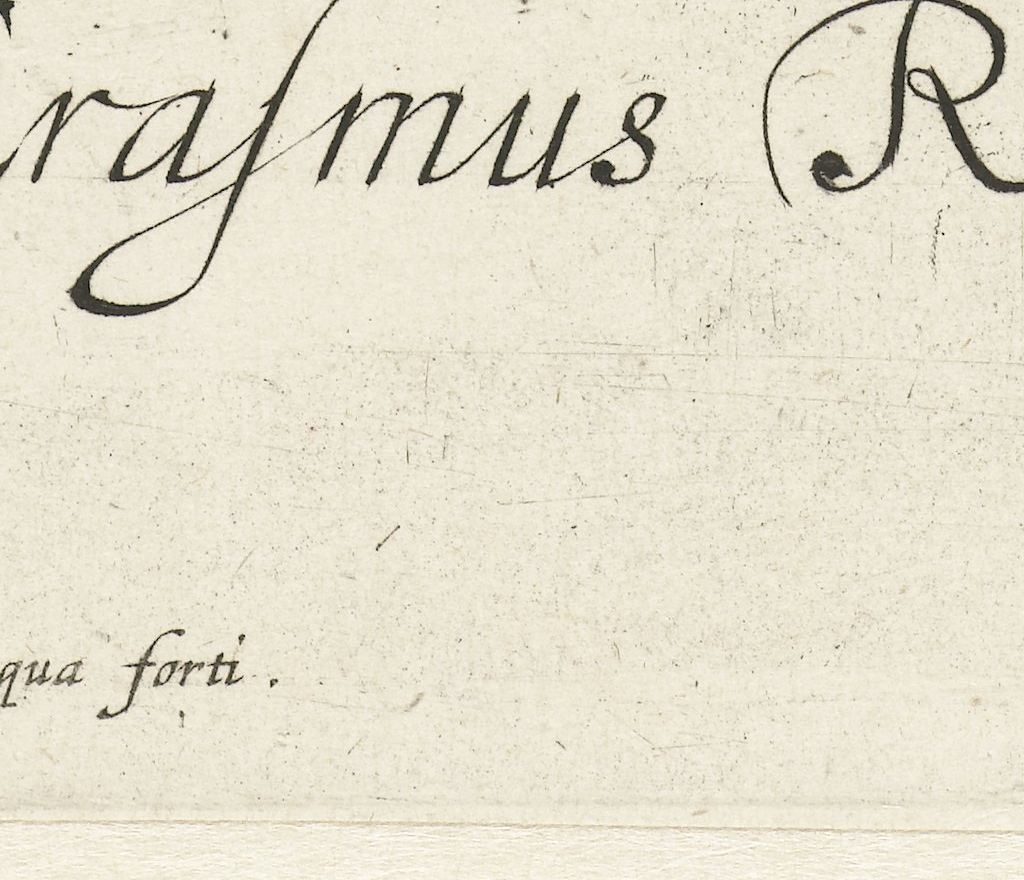 Eraſmus R
qua forti.